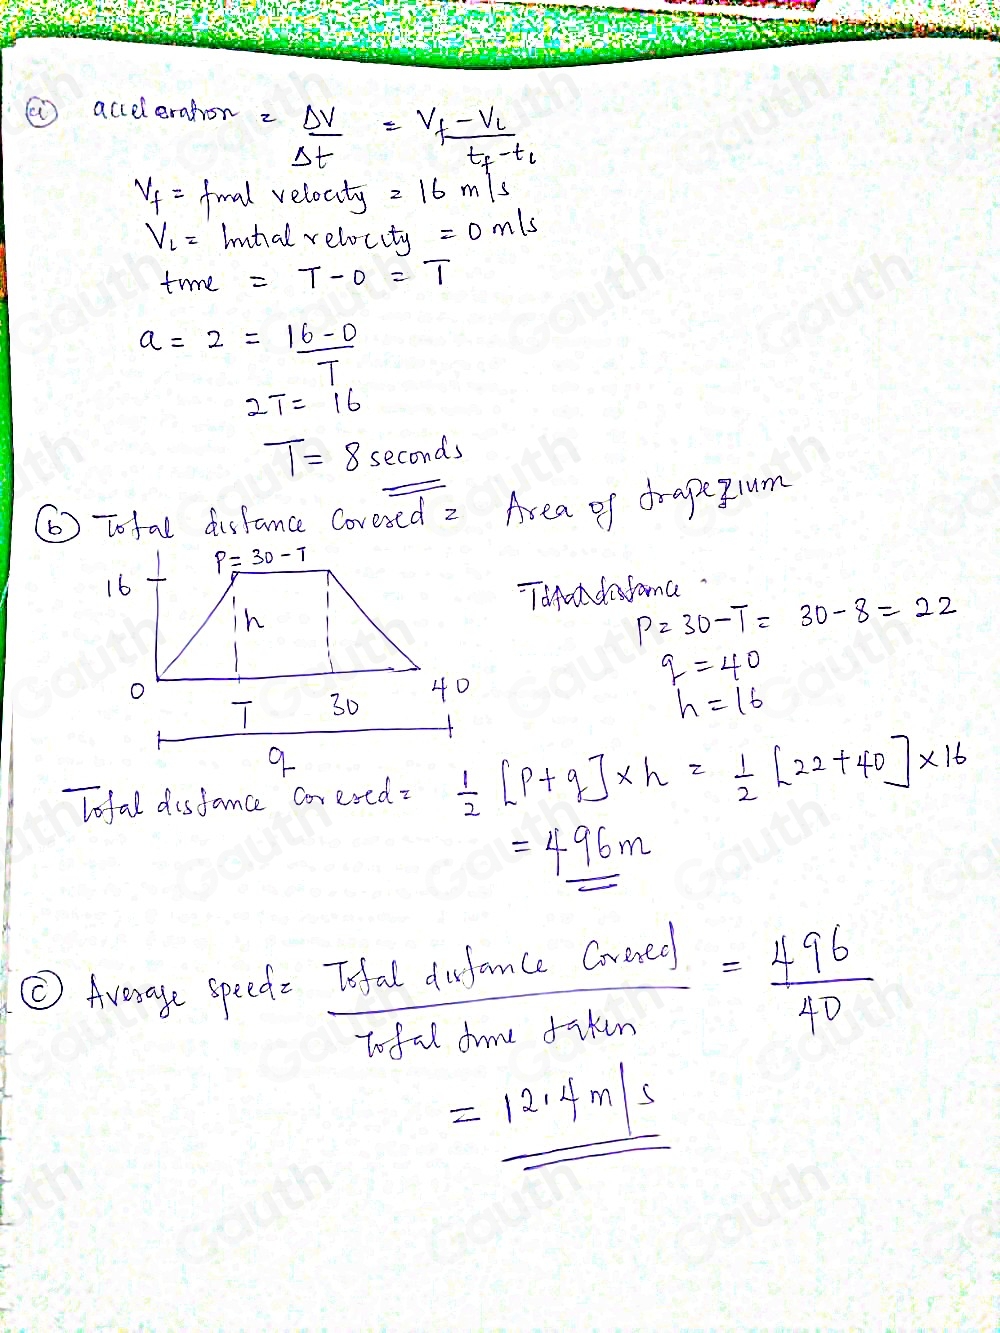 (a) acceleration = ΔV/Δt = Vf - Vi / tf - ti
Vf = final velocity = 16 m/s
Vi = Initial velocity = 0 m/s
time = T - 0 = T
a = 2 = 16 - 0 / T
2T = 16
T = 8 seconds
(b) Total distance Covered = Area of trapezium
P = 30 - T
16
h
0
T
30
40
q
Total distance
P = 30 - T = 30 - 8 = 22
q = 40
h = 16
Total distance covered = 1/2 [P + q] × h = 1/2 [22 + 40] × 16
= 496m
(c) Average speed = Total distance Covered / Total time taken = 496/40
= 12.4 m/s
Gauth